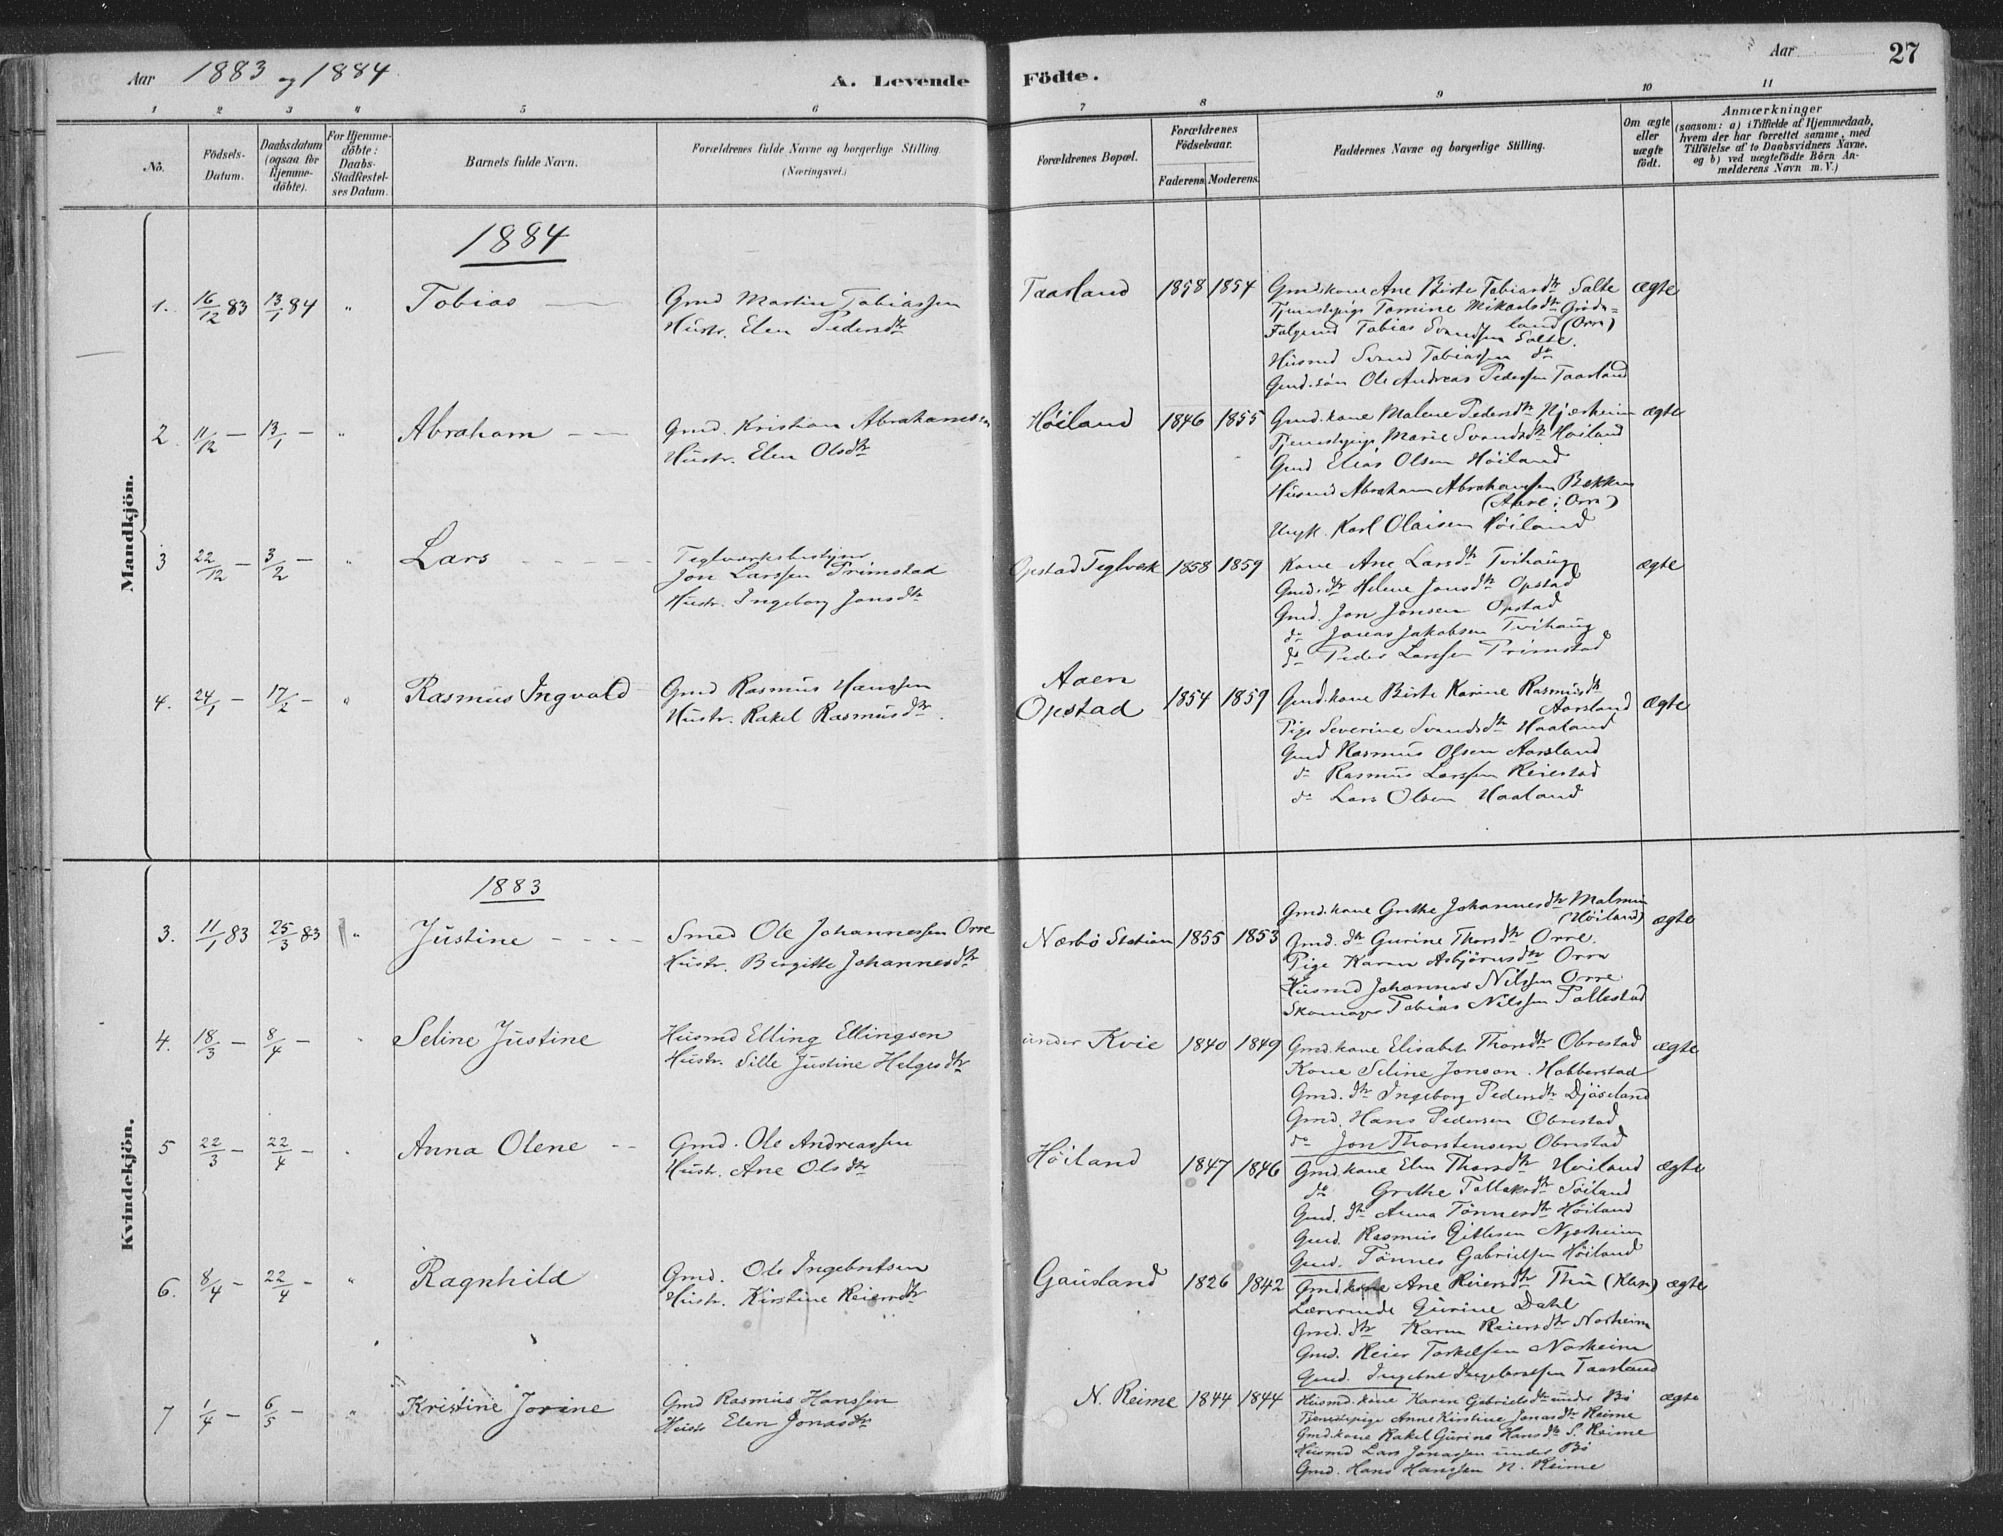 Aar 1883 og 1884 A. Levende Födte. Aar 27
1 2 3 4 5 6 7 8 9 10 11
No.
Födsels-
Datum.
Daabsdatum
(ogsaa for
Hjemme-
döbte).
For Hjemme-
döbte:
Daabs-
Stadfestel-
ses Datum.
Barnets fulde Navn.
Forældrenes fulde Navne og borgerlige Stilling.
(Næringsvei.)
Forældrenes Bopæl.
Forældrenes
Födselsaar.
Faderens. Moderens.
Faddernes Navne og borgerlige Stilling.
Om ægte
eller
uægte
födt.
Anmærkninger
(saasom: a) i Tilfælde af Hjemmedaab,
hvem der har forrettet samme, med
Tilföielse af to Daabsvidners Navne.
og b) ved uægtefödte Börn An-
melderens Navn m. V.)
Mandkjön.
1884
1. 16/12 83 13/1 84 " Tobias
Gmd Martin Tobiassen
Hustr. Elen Pedersdtr
Taarland 1858 1854
Gmdkone Ane Birte Tobiasdtr Salte ægte
Tjenestepige Tomine Mikaelsdtr Gröde=
Folgemd Tobias Svendsen land (Orre)
Salte.
Husmd Svend Tobiassen do
Gmd.sön Ole Andreas Pedersen Taarland
2. 11/12 — 13/1 — " Abraham
Gmd. Kristian Abrahamsen
Hustr. Elen Olsdtr
Höiland 1846 1855
Gmd.kone Malene Pedersdtr Njærheim ægte
Tjenestepige Marie Svendsdtr Höiland
Gmd Elias Olsen Höiland
Husmd Abraham Abrahamsen Bekken
(Aare i Orre)
Ungk. Karl Olaisen Höiland
3 22/12 — 3/2 — " Lars
Teglværksbestyrer
Jon Larssen Primstad
Hustr. Ingeborg Jonsdtr
Opstad Teglverk 1858 1859
Kone Ane Larsdtr Tvihaug ægte
Gmd.dtr Helene Jonsdtr Opstad
Gmd. Jon Jonsen Opstad
do Jonas Jakobsen Tvihaug
do Peder Larssen Primstad
4. 24/1 — 17/2 — " Rasmus Ingvald
Gmd Rasmus Hanssen
Hustr. Rakel Rasmusdtr.
Aaen
Opstad 1854 1859
Gmd.kone Birte Karine Rasmusdtr
Aarsland ægte
Pige Severine Svendsdtr Haaland
Gmd Rasmus Olsen Aarsland
do Rasmus Larssen Reiestad
do Lars Olsen Haaland
Kvindekjön.
1883
3. 11/1 83 25/3 83 " Justine
Smed Ole Johannessen Orre
Hustr. Birgitte Johannesdtr
Nærbö Station 1855 1853
Gmd.kone Grethe Johannesdtr Malmin
(Höiland) ægte
Gmd. dtr Gurine Thorsdtr Orre.
Pige Karen Asbjörnsdtr Orre
Husmd Johannes Nilssen Orre
Skomager Tobias Nilssen Pollestad
4. 18/3 — 8/4 — " Seline Justine
Husmd Elling Ellingsen
Hustr. Sille Justine Helgesdtr
under Kvie 1840 1849
Gmd.kone Elisabet Thorsdtr Obrestad ægte
Kone Seline Jonson. Habberstad
Gmd. dtr Ingeborg Pedersdtr Djöseland
Gmd. Hans Pedersen Obrestad
do Jon Thorstensen Obrestad
5 22/3 — 22/4 — " Anna Olene
Gmd. Ole Andreassen
Hustr. Ane Olsdtr
Höiland 1847 1846
Gmdkone Elen Thorsdtr Höiland ægte
do Grethe Tollaksdtr Söiland
Gmd. dtr Anna Tönnesdtr Höiland
Gmd. Rasmus Gitlesen Njærheim
Gmd. Tönnes Gabrielsen Höiland
6. 8/4 — 22/4 — " Ragnhild
Gmd. Ole Ingebretsen
Hustr. Kirstine Reiersdtr
Gausland 1826 1842
Gmdkone Ane Reiersdtr Thu (Klep) ægte
Lærerinde Gurine Dahl
Gmd. dtr Karen Reiersdtr Norheim
Gmd. Reier Torkelsen Norheim
Gmd. Ingebret Ingebretsen Taarland
7 1/4 — 6/5 — " Kristine Jorine
Gmd Rasmus Hanssen
Hustr Elen Jonasdtr
N. Reime 1844 1844
Husmd.kone Karen Gabrielsdtr under Bö ægte
Tjenestepige Anne Kirstine Jonasdtr Reime
Gmdkone Rakel Gurine Hansdtr S. Reime
Husmd Lars Jonassen under Bö
Gmd. Hans Hanssen N. Reime